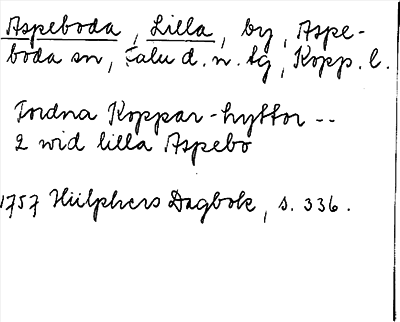 Aspeboda, Lilla, by, Aspe-
boda sn, Falu d. n. tg, Kopp. l.
Fordna Koppar-hyttor --
2 wid lilla Aspebo
1757 Hülphers Dagbok, s. 336.